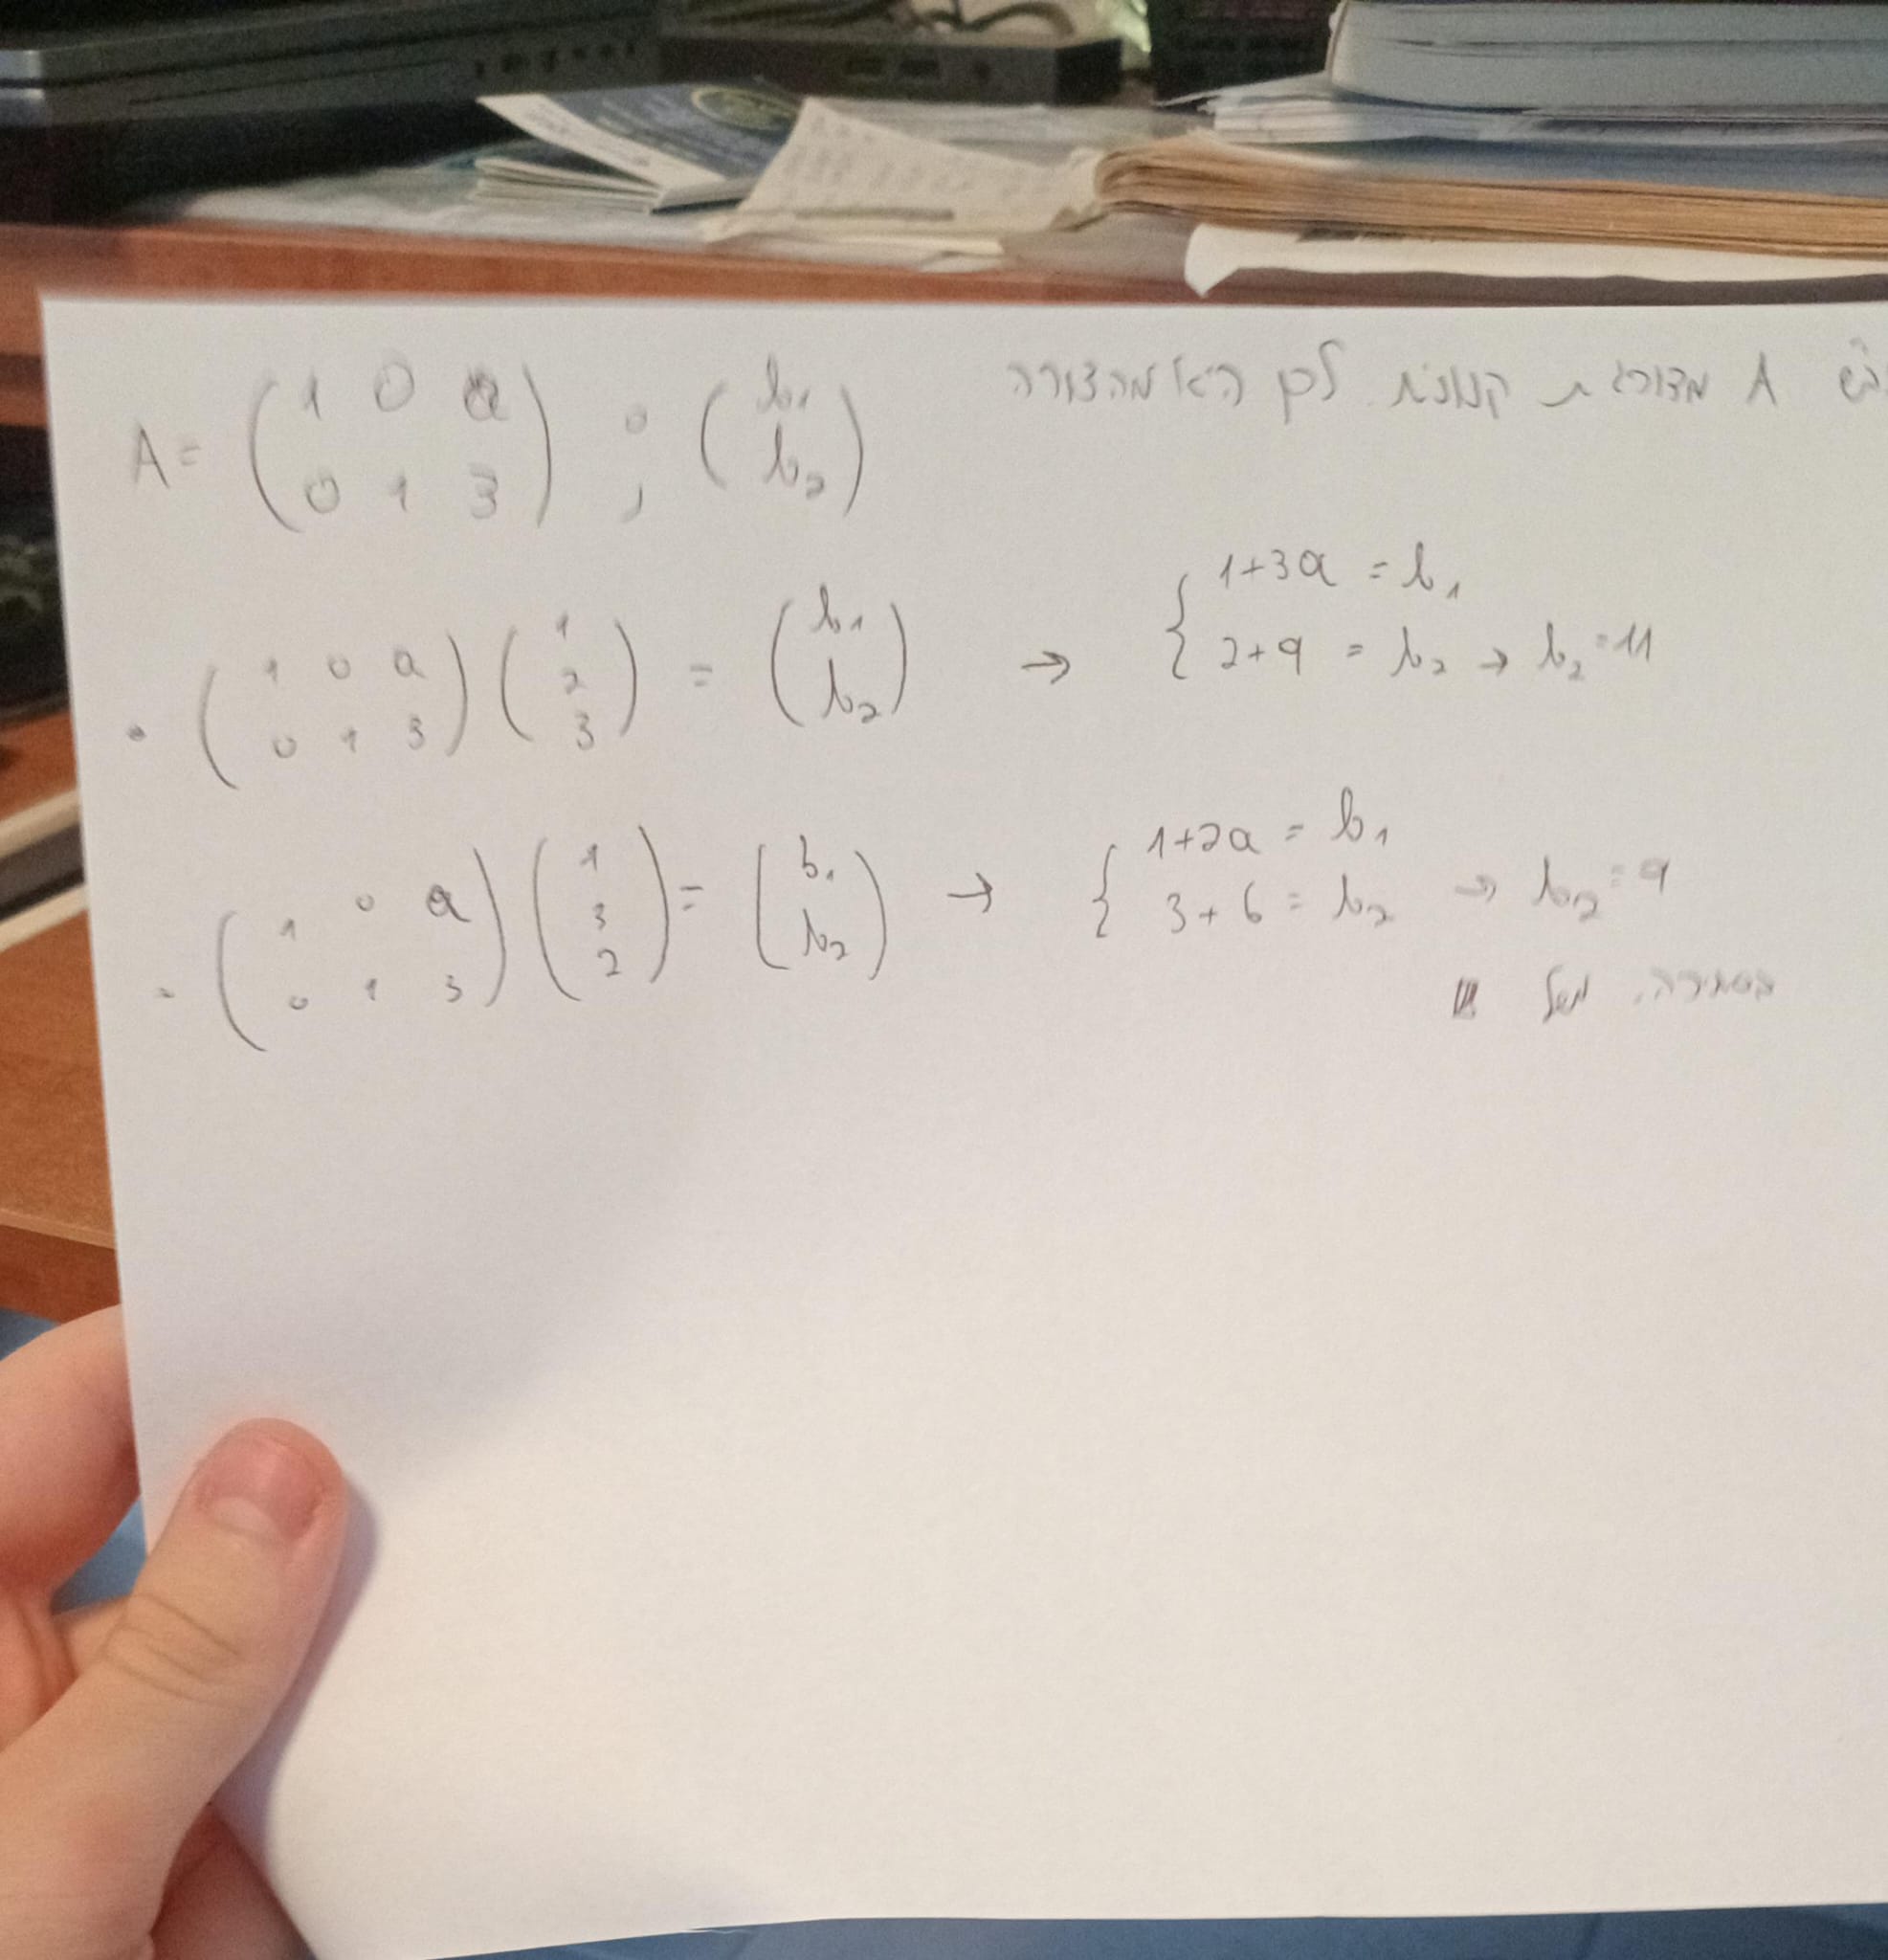 A מדורגת קנונית לכן היא מהצורה
A = ( 1 0 a ; 0 1 3 ) ; ( b₁ ; b₂ )
• ( 1 0 a ; 0 1 3 ) ( 1 ; 2 ; 3 ) = ( b₁ ; b₂ ) → { 1+3a = b₁ ; 2+9 = b₂ → b₂ = 11
• ( 1 0 a ; 0 1 3 ) ( 1 ; 3 ; 2 ) = ( b₁ ; b₂ ) → { 1+2a = b₁ ; 3+6 = b₂ → b₂ = 9
בסתירה. משל